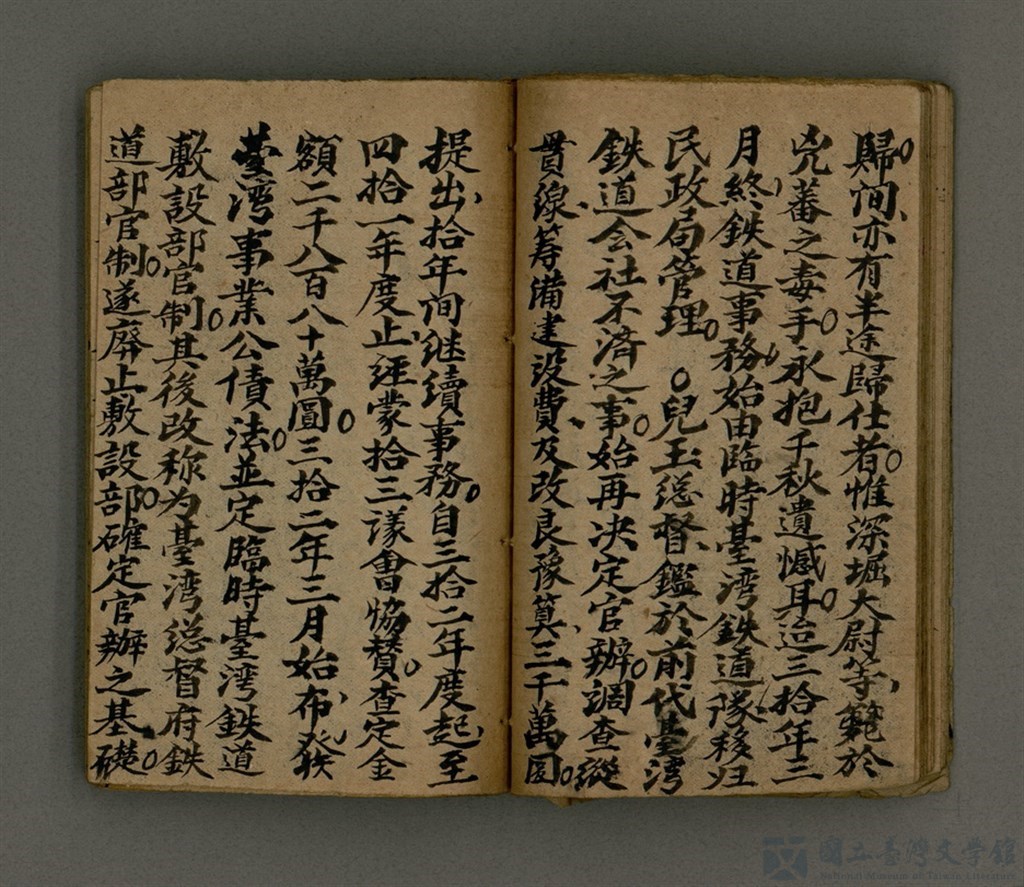 歸。间、亦有半途歸仕者。惟深堀大尉等、斃於
兇蕃之毒手。永抱千秋遺憾耳。迨三拾年三
月終、鉄道事務、始由臨時臺湾鉄道隊移归
民政局管理。○兒玉総督、鑑於前代臺湾
鉄道会社不済之事。始再决定官辦。調查縱
貫線、筹備建设費、及改良豫算、三千萬圓。
提出、拾年间継續事務。自三拾二年度起、至
四拾一年度止、經蒙拾三議會協賛。查定金
額二千八百八十萬圓。三拾二年三月始布、發
臺湾事業公債法。並定臨時臺湾鉄道
敷設部官制。其後改称为臺湾総督府鉄
道部官制。遂廃止敷設部。確定官辦之基礎。
國立臺灣文學館
National Museum of Taiwan Literature